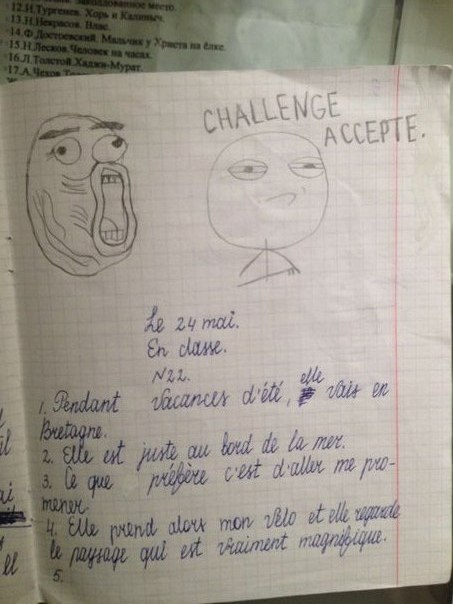 Заколдованное место.
12.И.Тургенев. Хорь и Калиныч.
13.Н.Некрасов. Влас.
14.Ф.Достоевский. Мальчик у Христа на ёлке.
15.Н.Лесков. Человек на часах.
16.Л.Толстой. Хаджи-Мурат.
17.А.Чехов.
CHALLENGE
ACCEPTE.
Le 24 mai.
En classe.
N22.
1. Pendant vacances d'été, elle vais en
Bretagne.
2. Elle est juste au bord de la mer.
3. Ce que préfère c'est d'aller me pro-
mener.
4. Elle prend alors mon vélo et elle regarde
le paysage qui est vraiment magnifique.
5.